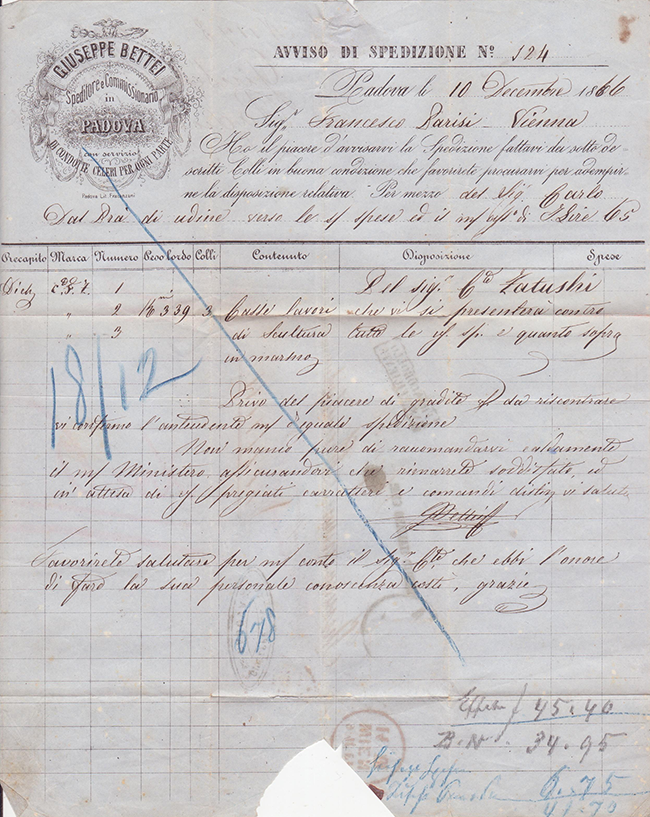 GIUSEPPE BETTEI
Speditore e Commissionario
in
PADOVA
con servizio
DI CONDOTTE CELERI PER OGNI PARTE
Padova Lit.
AVVISO DI SPEDIZIONE Nº 124
Padova li 10 Decembre 1866
Sigr. Francesco Parisi Vienna
Ho il piacere d'avvisarvi la Spedizione fattavi dei sotto de
scritti Colli in buona condizione che favorirete procurarvi per adempir
ne la disposizione relativa. Per mezzo del Sig. Carlo
Dal Prà di udine verso le s/ spese ed il m/ di Lire 65
Recapito Marca Numero Peso lordo Colli Contenuto Disposizione Spese
1 Del sigr. Cte Zatushi
" 2 339 3 Casse lavori che vi si presenterà contro
" 3 di Scultura tutte le sp. e quanto sopra
in marmo
18/12
Privo del piacere di gradite da riscontrare
vi confermo l'antecedente m/ e quale spedizione
Non manco pure di raccomandarvi caldamente
il m/ Ministero assicurandovi che rimarrete soddisfatto, ed
in attesa di pregiati caratteri e comandi vi salut.
GBettei
Favorirete salutare per m/ conto il Sigr. Cte. che ebbi l'onore
di fare la sua personale conoscenza costì, grazie
678
45.40
B.N. 34.95
6.75
41.70